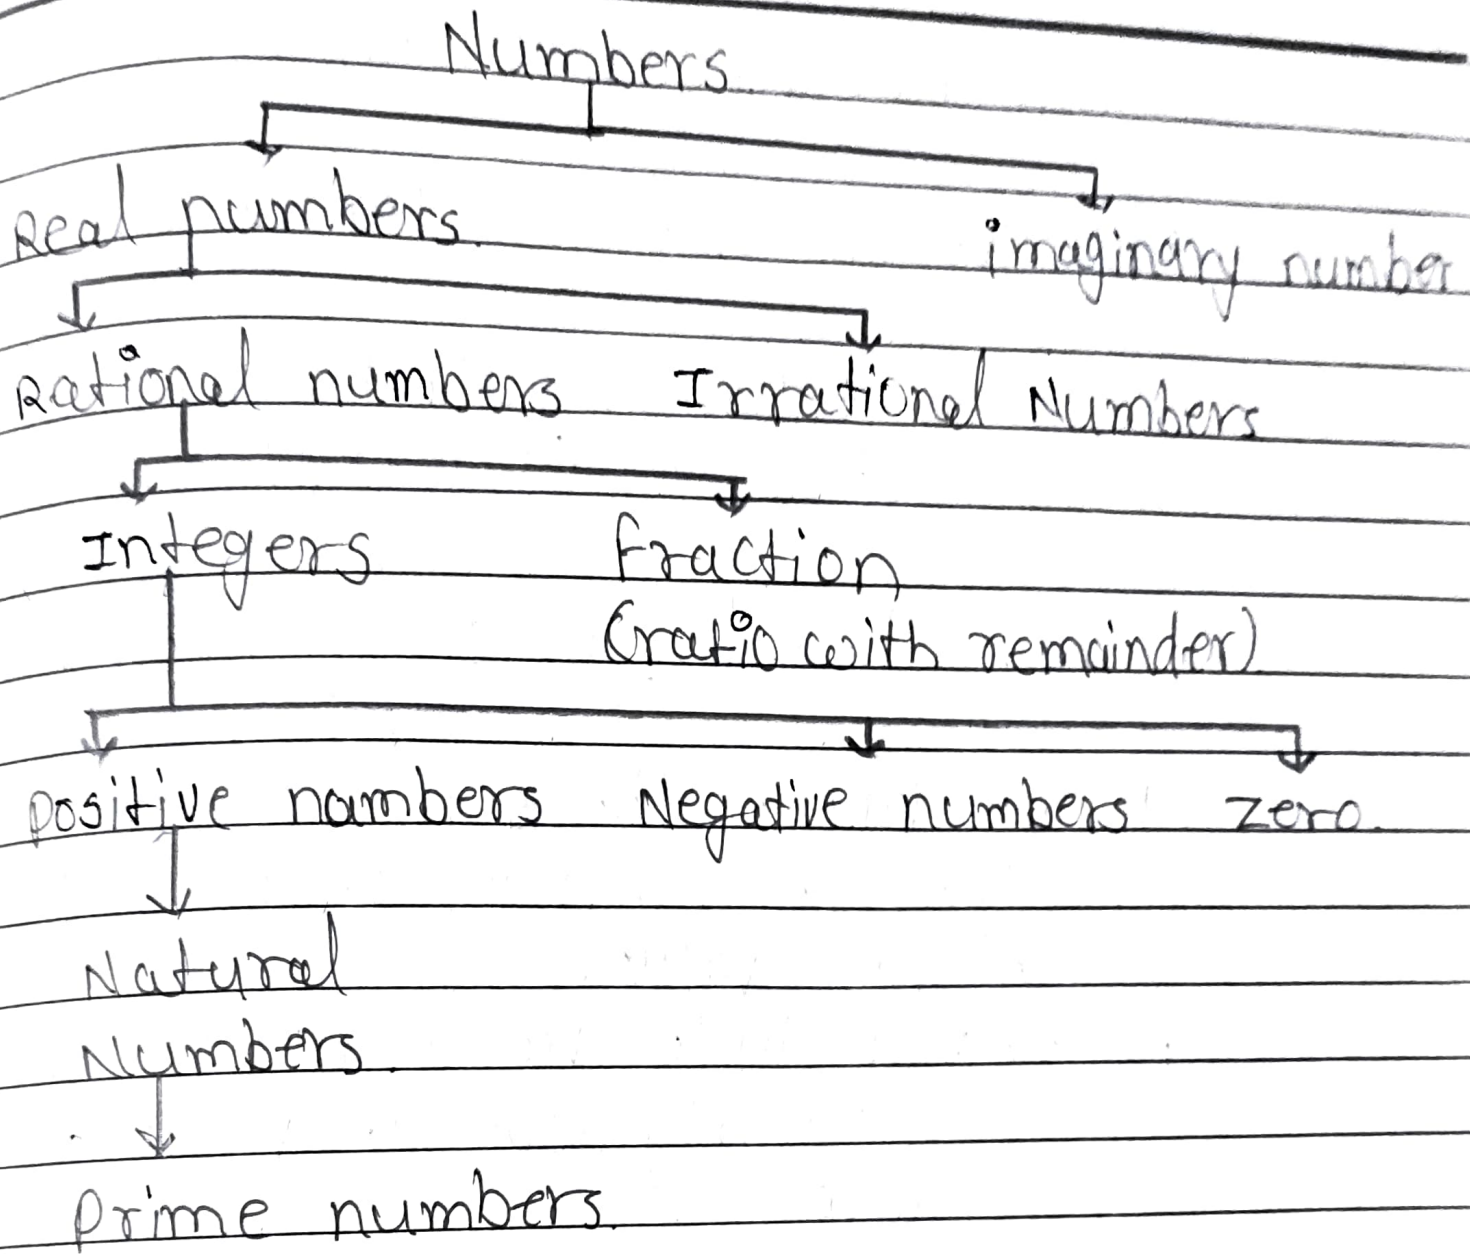 Numbers
Real numbers.
imaginary number
Rational numbers Irrational Numbers
Integers fraction
(ratio with remainder)
positive nambers Negative numbers zero.
Natural
Numbers.
prime numbers.